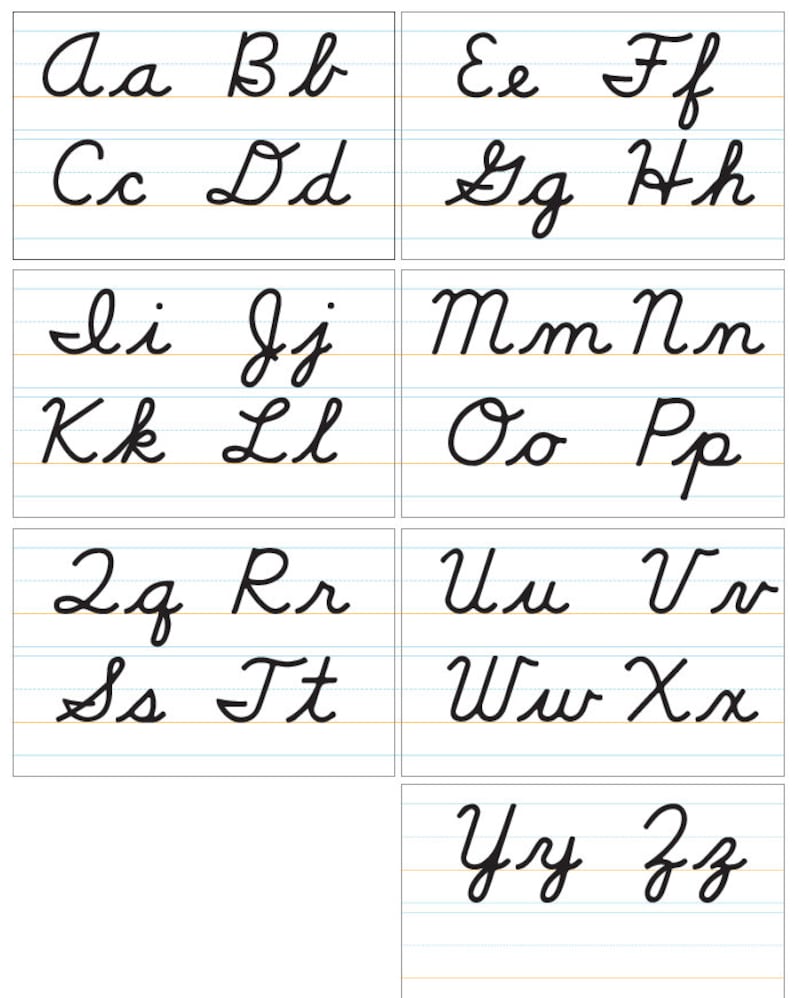 Aa Bb
Cc Dd
Ee Ff
Gg Hh
Ii Jj
Kk Ll
Mm Nn
Oo Pp
Qq Rr
Ss Tt
Uu Vv
Ww Xx
Yy Zz